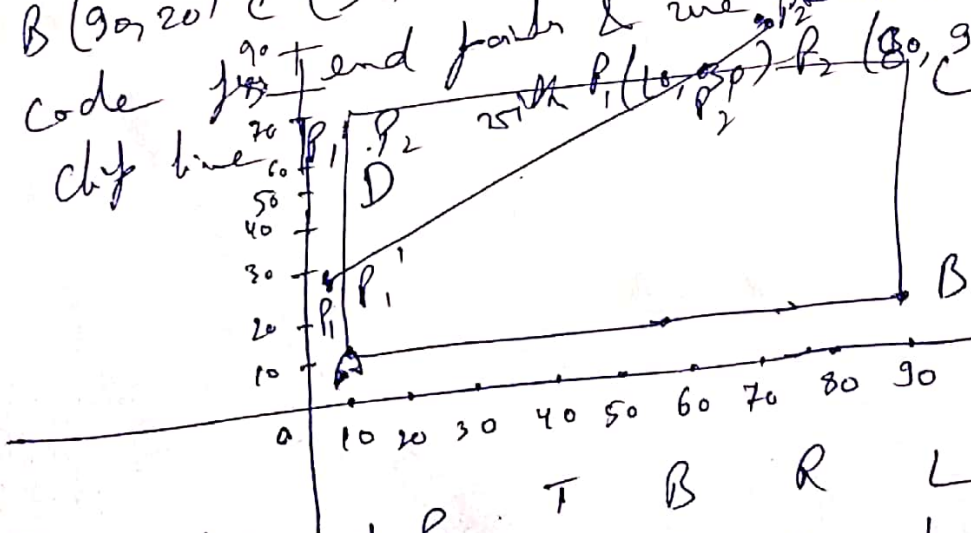 B (90, 20) C (
code for end points & use P2
with P1 (10, 30) P2 (80, 9
clip line
90
70
60
50
40
30
20
10
P1 P2
D
P2
C
P1 P1'
A
B
0 10 20 30 40 50 60 70 80 90
T B R L
P